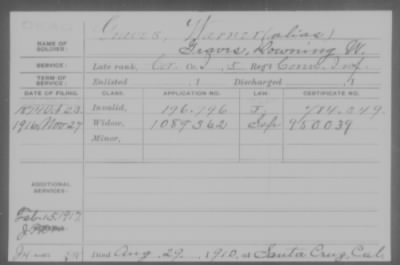 Graves, Warner (alias)
NAME OF SOLDIER: Graves, Downing W.
SERVICE: Late rank, Co. I, 5 Reg't Conn. Inf.
TERM OF SERVICE: Enlisted , 1 Discharged , 1
DATE OF FILING. CLASS. APPLICATION NO. LAW. CERTIFICATE NO.
Invalid, 196.196 484.049
1916 Nov 27 Widow, 1089362 950039
Minor,
ADDITIONAL SERVICES:
Feb. 15, 1917
Died Aug. 29. 1910, at Santa Cruz, Cal.